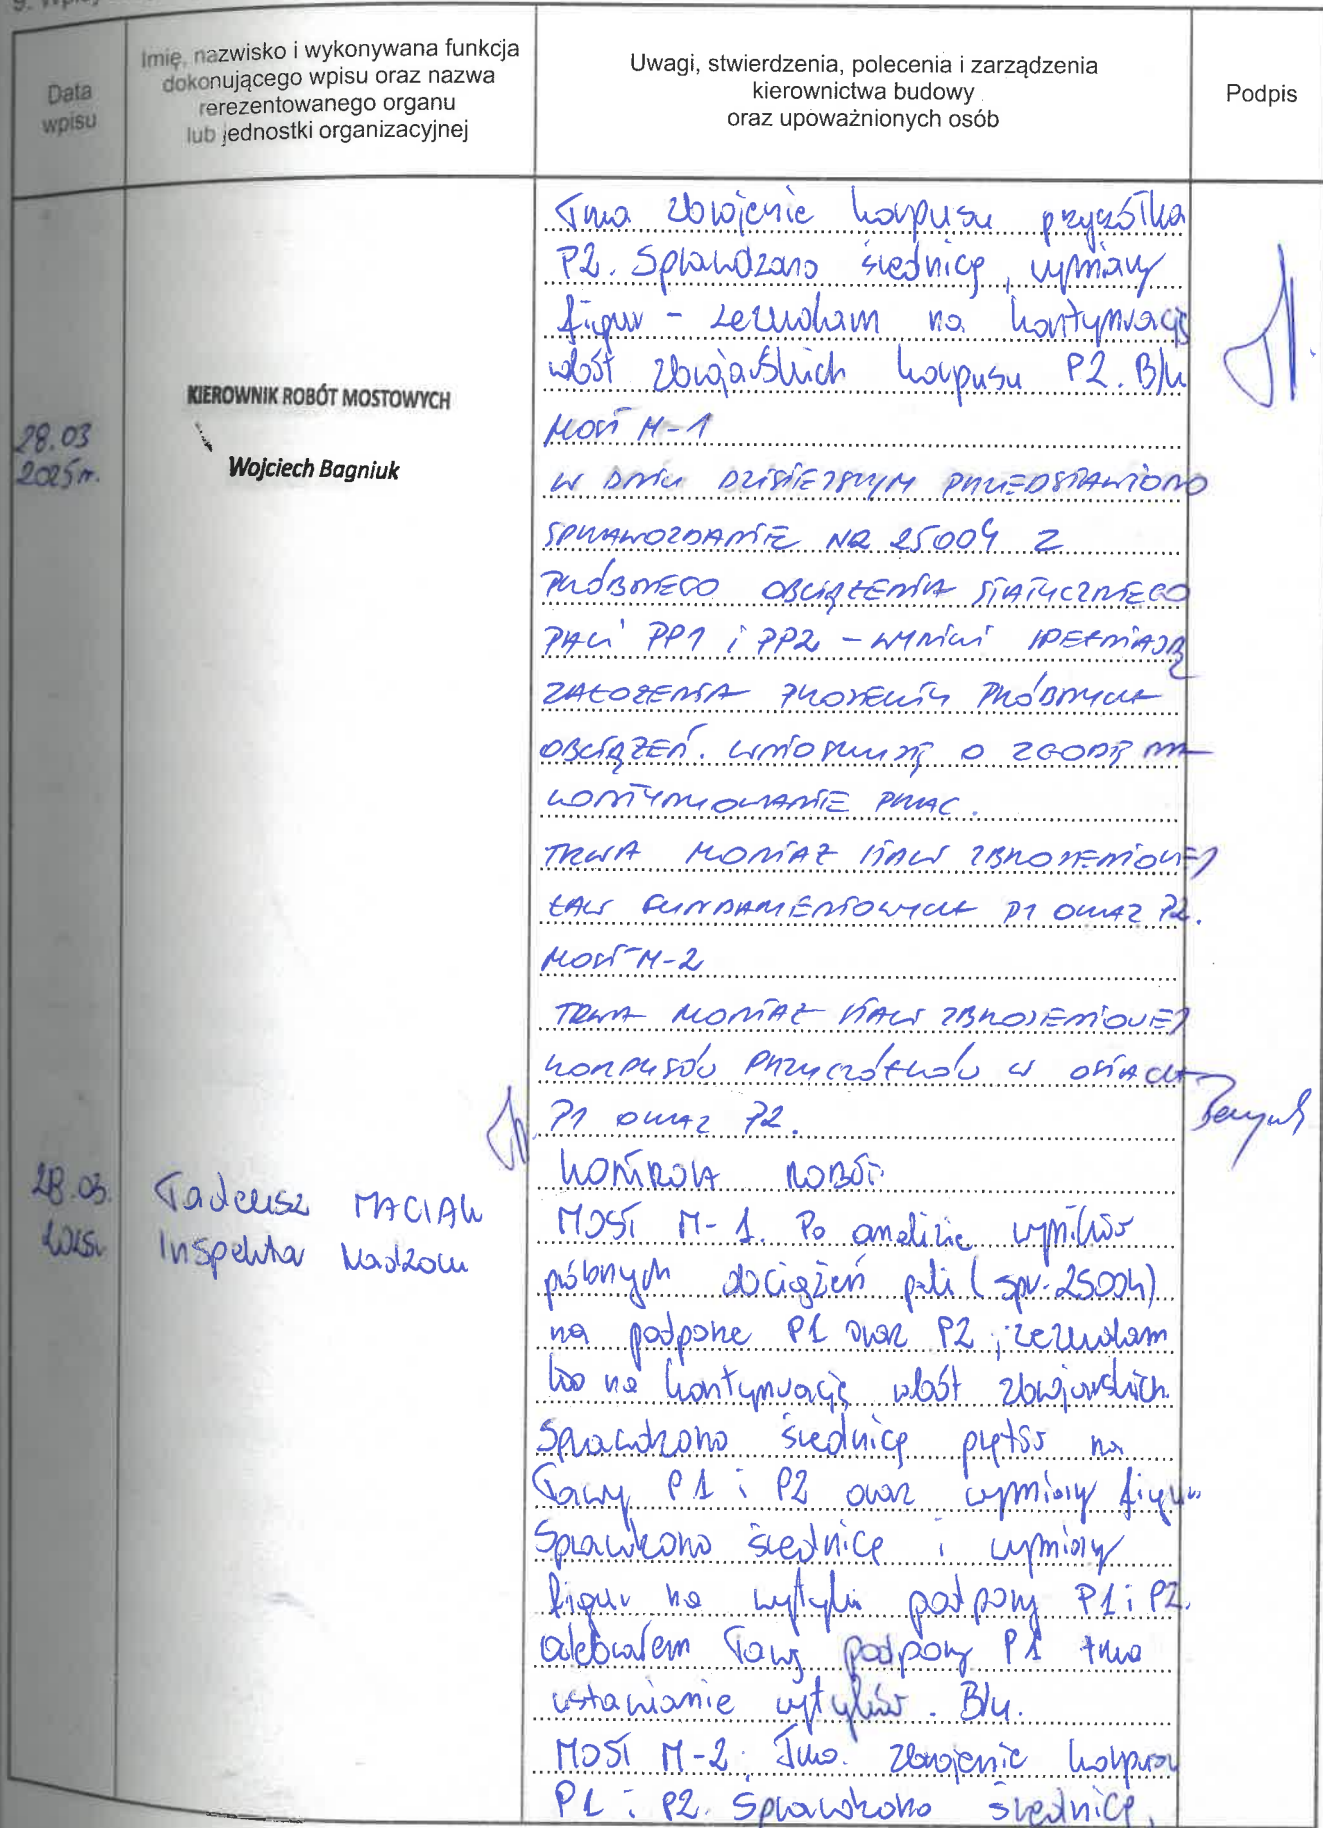 Data
wpisu
Imię, nazwisko i wykonywana funkcja
dokonującego wpisu oraz nazwa
rerezentowanego organu
lub jednostki organizacyjnej
Uwagi, stwierdzenia, polecenia i zarządzenia
kierownictwa budowy
oraz upoważnionych osób
Podpis
Trwa zbrojenie korpusu przyczółka
P2. Sprawdzano średnicę, wymiary
figur - zezwalam na kontynuację
robót zbrojarskich korpusu P2. B/u
28.03
2025r.
KIEROWNIK ROBÓT MOSTOWYCH
Wojciech Bagniuk
MOST M-1
W DNIU DZISIEJSZYM PRZEDSTAWIONO
SPRAWOZDANIE NR 25004 Z
PRÓBNEGO OBCIĄŻENIA STATYCZNEGO
PALI PP1 i PP2 - WYNIKI SPEŁNIAJĄ
ZAŁOŻENIA PROJEKTU PRÓBNYCH
OBCIĄŻEŃ. WNIOSKUJĘ O ZGODĘ NA
KONTYNUOWANIE PRAC.
TRWA MONTAŻ STALI ZBROJENIOWEJ
ŁAW FUNDAMENTOWYCH P1 ORAZ P2.
MOST M-2
TRWA MONTAŻ STALI ZBROJENIOWEJ
KORPUSÓW PRZYCZÓŁKÓW W OSIACH
P1 ORAZ P2.
28.03.
2025r.
Tadeusz MACIAK
Inspektor Nadzoru
KONTROLA ROBÓT:
MOST M-1. Po analizie wyników
próbnych dociążeń pali (spr. 25004)
na podporze P1 oraz P2, zezwalam
na kontynuację robót zbrojarskich.
Sprawdzono średnicę prętów na
ławy P1 i P2 oraz wymiary figur
Sprawdzono średnicę i wymiary
figur na wytyki podpory P1 i P2.
odebrałem ławę podpory P1 trwa
ustawianie wytyków. B/u.
MOST M-2. Trwa zbrojenie korpusu
P1 i P2. Sprawdzono średnicę,